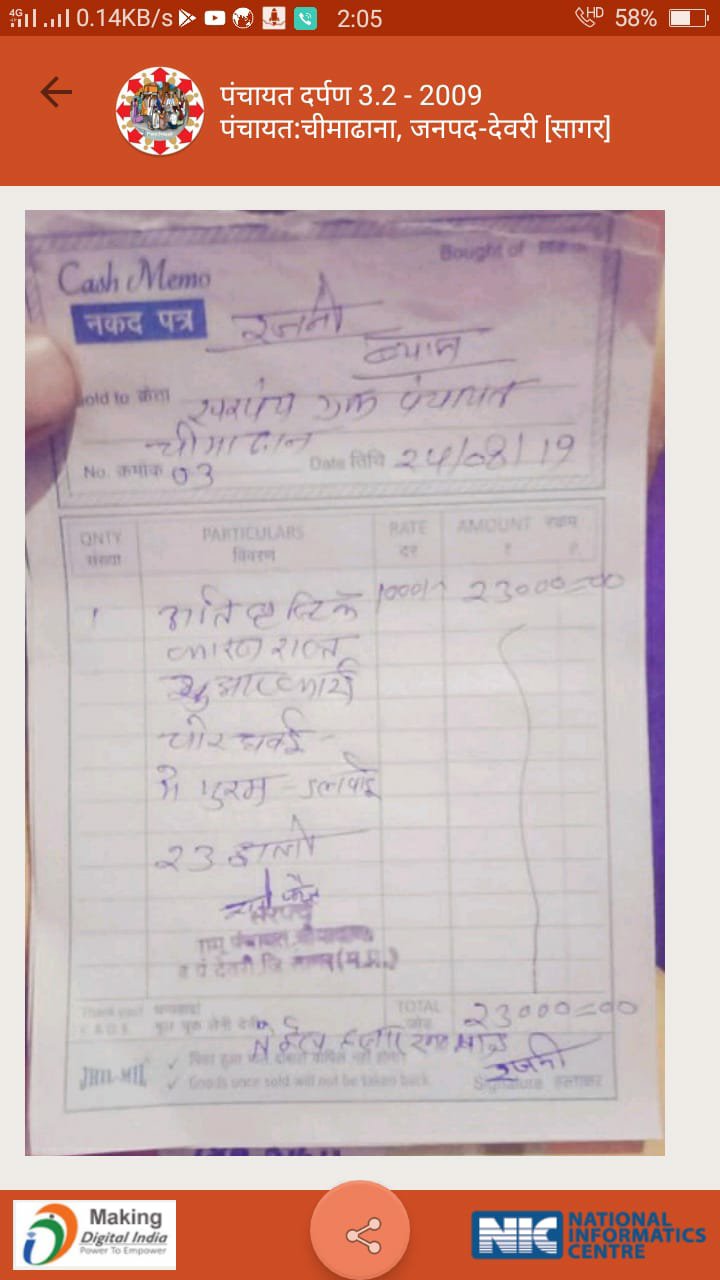 4G 0.14KB/s 2:05 HD 58%
पंचायत दर्पण 3.2 - 2009
पंचायत:चीमाढाना, जनपद-देवरी [सागर]
Bought of
Cash Memo
नकद पत्र रजनी
ब्यास
Sold to क्रेता सरपंच ग्राम पंचायत
चीमाढाना
No. क्रमांक 03 Date तिथि 24/08/19
QNTY संख्या PARTICULARS विवरण RATE दर AMOUNT रकम
1 अतिवृष्टि के 1000/- 23000=00
कारण
में मुरम डलवाई
23 ट्राली
सरपंच
TOTAL जोड़ 23000=00
Thank you! धन्यवाद!
E. & O. E. भूल चूक लेनी देनी
रजनी
JHIL-MIL
✓ Goods once sold will not be taken back. Signature हस्ताक्षर
Making
Digital India
Power To Empower
NIC NATIONAL
INFORMATICS
CENTRE